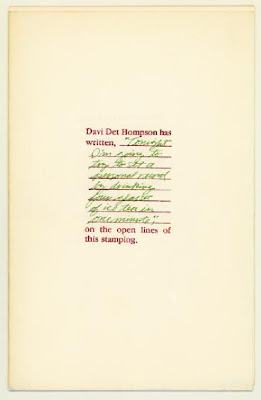 Davi Det Hompson has
written, "Tonight
I'm going to
try to set a
personal record
by drinking
four glasses
of ice tea in
one minute",
on the open lines of
this stamping.